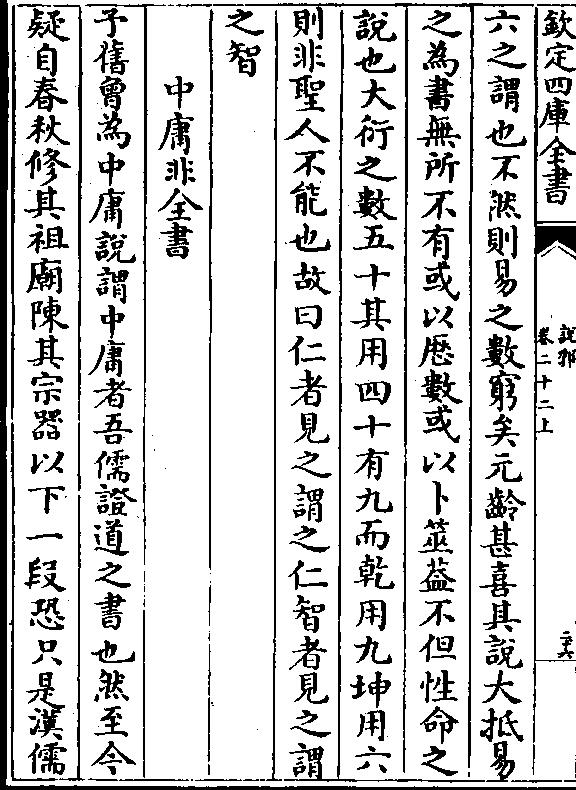 欽定四庫全書
說郛
卷二十二上
二十六
六之謂也不然則易之數窮矣元齡甚喜其說大抵易
之為書無所不有或以厯數或以卜筮葢不但性命之
說也大衍之數五十其用四十有九而乾用九坤用六
則非聖人不能也故曰仁者見之謂之仁智者見之謂
之智
中庸非全書
予舊曾為中庸說謂中庸者吾儒證道之書也然至今
疑自春秋修其祖廟陳其宗器以下一段恐只是漢儒